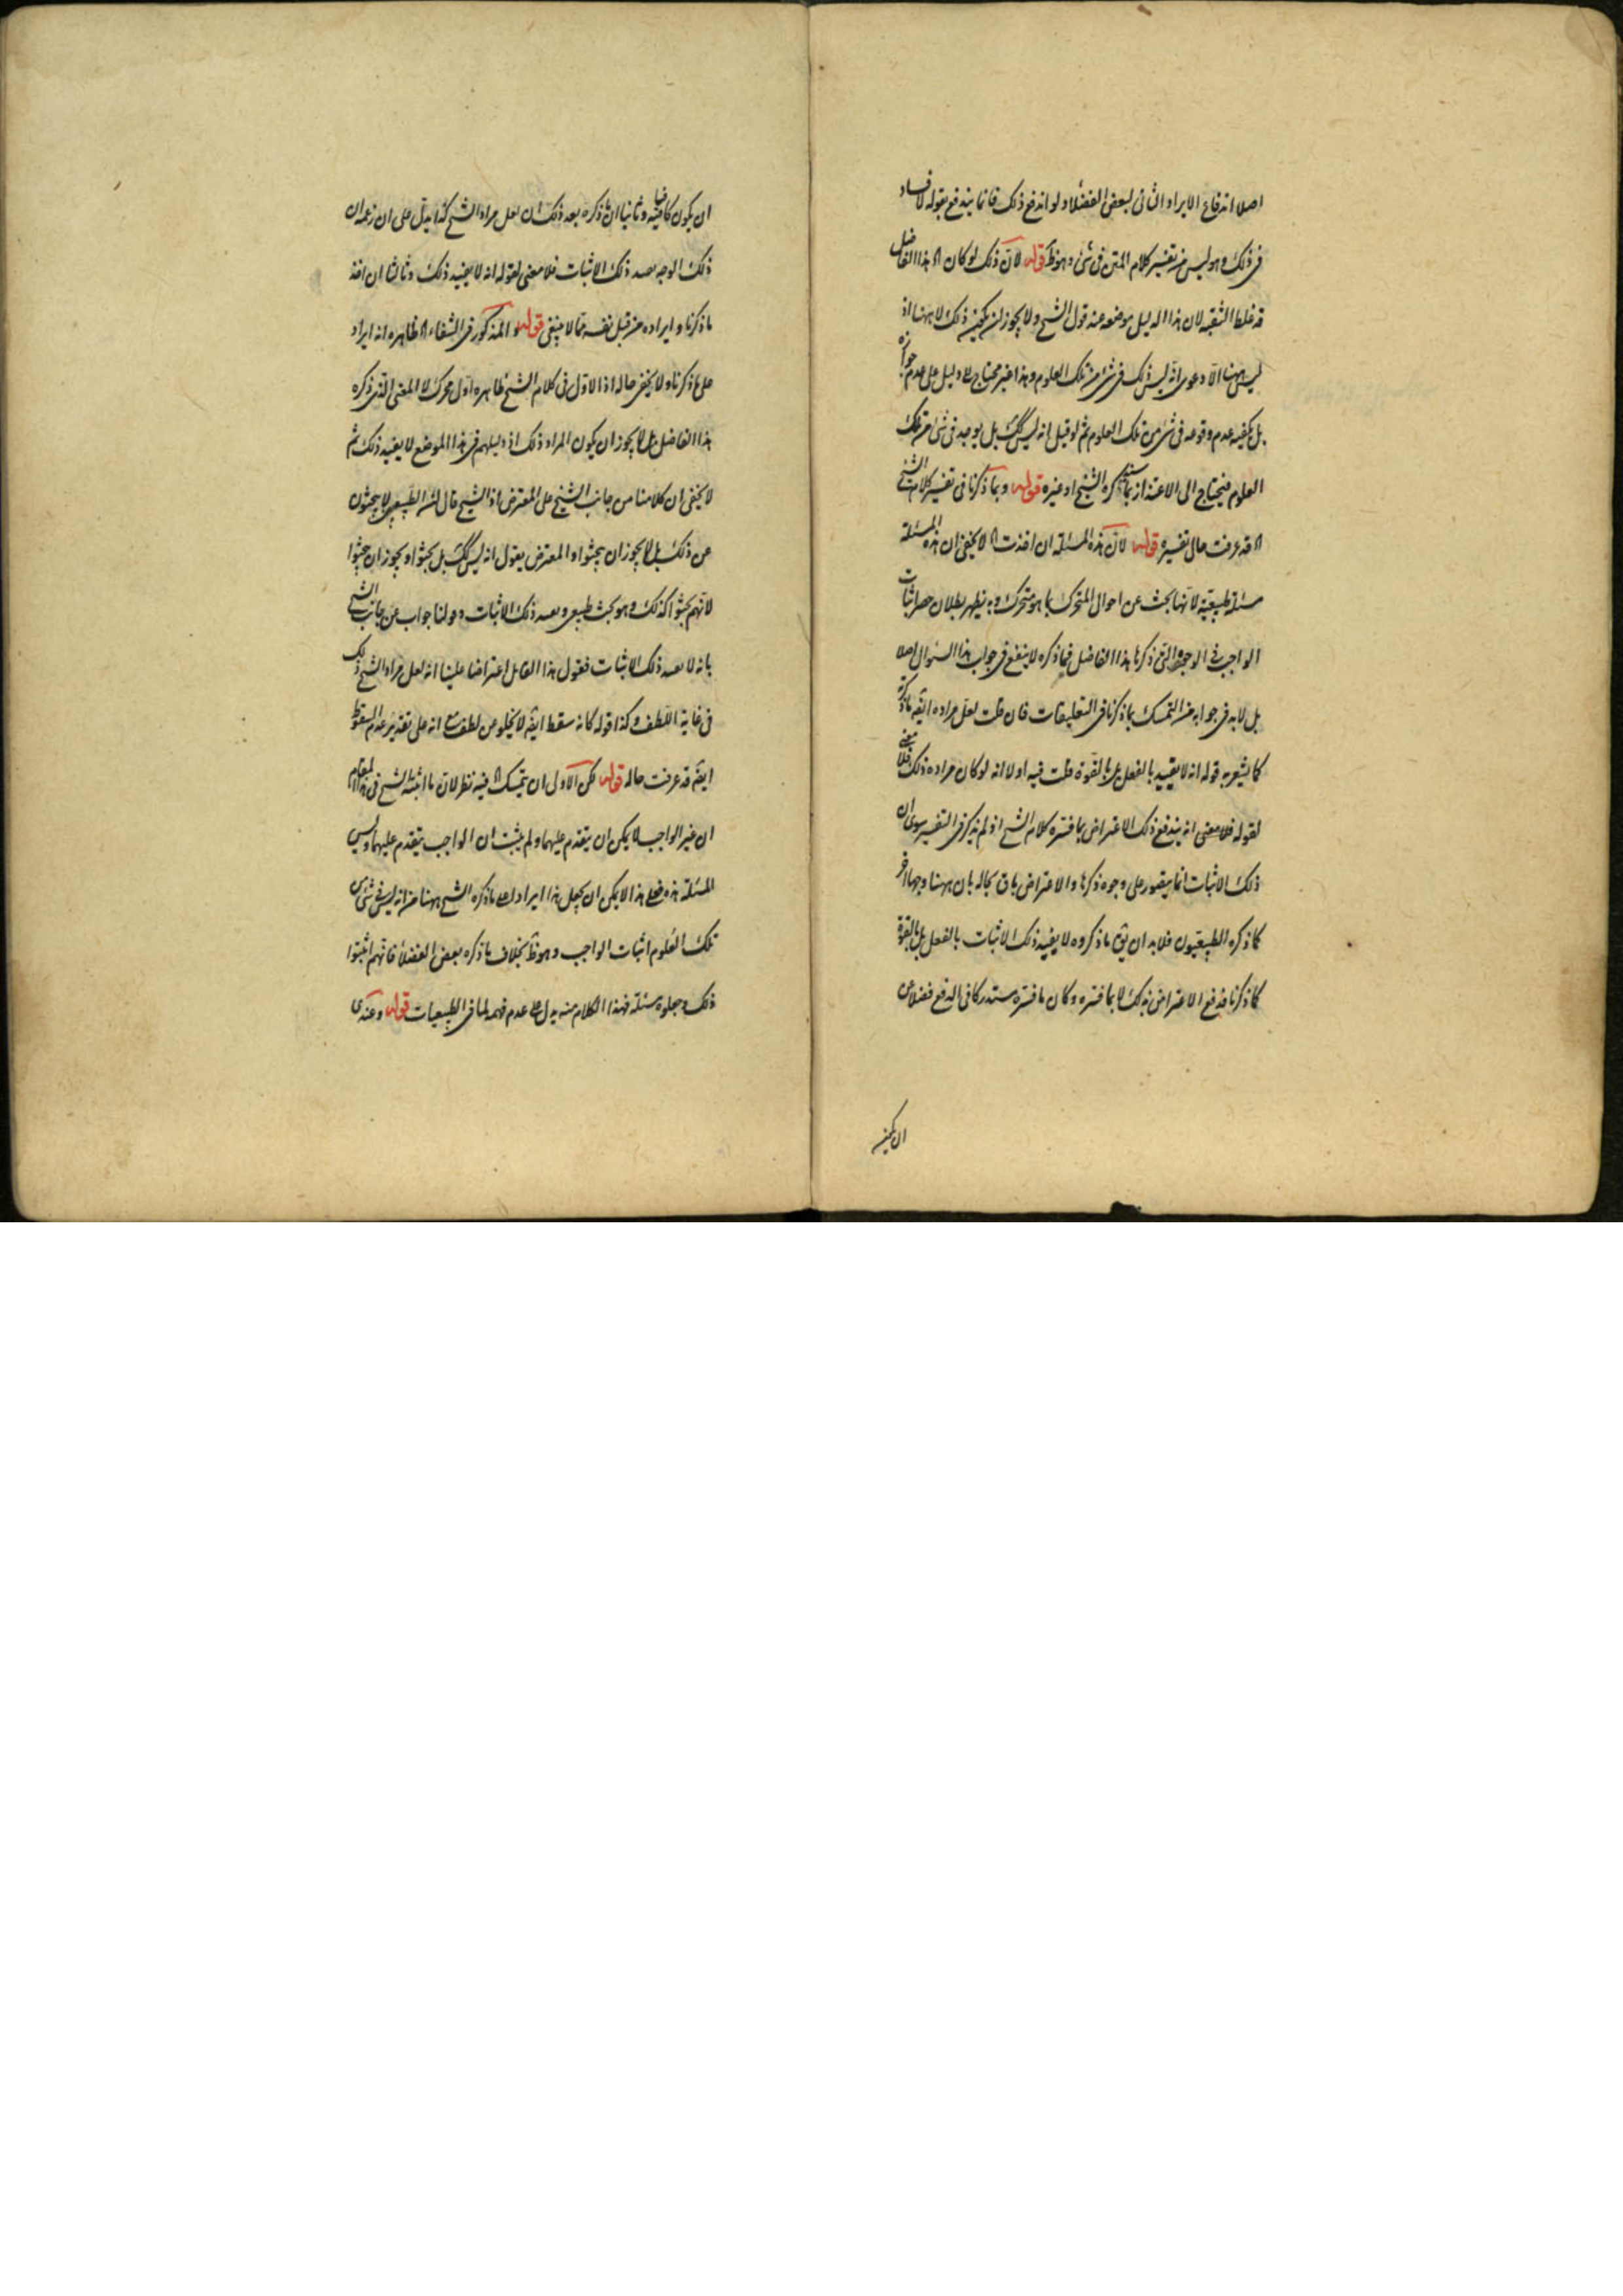 اصلا اندفاع الايراد الثانى لبعض الفضلاء ولو اندفع ذلك فانما يندفع بقوله لا فساد
فى ذلك وهو ليس من تفسير كلام المتن فى شئ وهو ظ قوله لان ذلك لو كان اه هذا الفاضل
قد غلط لان هذا الدليل موضعه عند قول الشيخ ولا يجوز ان يكون ذلك لا ههنا اذ
ليس ههنا الا دعوى انه ليس ذلك فى شئ من تلك العلوم وهذا غير محتاج الى دليل على عدم جوازه
بل يكفيه عدم وقوعه فى شئ من تلك العلوم ثم لو قيل انه ليس كك بل يوجد فى شئ من تلك
العلوم فيحتاج الى الاعتذار بما سيذكره الشيخ او غيره قوله وبما ذكرنا فى تفسير كلام الشيخ
اه قد عرفت حال تفسيره قوله لان هذه المسئلة ان اخذت اه لا يخفى ان هذه المسئلة
مسئلة طبيعية لانها بحث عن احوال المتحرك بما هو متحرك وبه يظهر بطلان حصر اثبات
الواجب فى الوجوه التى ذكرها هذا الفاضل فما ذكره لا ينفع فى جواب هذا السؤال اصلا
بل لا بد فى جوابه من التمسك بما ذكرنا فى التعليقات فان قلت لعل مراده ايض ما ذكرته
كما يشعر به قوله انه لا يفيد بالفعل بل بالقوة قلت فيه اولا انه لو كان مراده ذلك فلا معنى
لقوله فلا معنى انه يندفع ذلك الاعتراض بما فسره كلام الشيخ اذ لم يذكر فى التفسير سوى ان
ذلك الاثبات انما يتصور على وجوه ذكرها والاعتراض باق بحاله بان ههنا وجها اخر
كما ذكره الطبيعيون فلا بد ان يق ما ذكروه لا يفيد ذلك الاثبات بالفعل بل بالقوة
كما ذكرنا فدفع الاعتراض بذلك لا بما فسره وكان ما فسره مستدركا فى الدفع فضلا عن
ان يكون
ان يكون كافيا فيه وثانيا ان ما ذكره بعد ذلك ان لعل مراد الشيخ كذا يدل على ان زعمه ان
ذلك الوجه يفيد ذلك الاثبات فلا معنى لقوله انه لا يفيد ذلك وثالثا ان اخذ
ما ذكرنا وايراده من قبل نفسه مما لا ينبغى قوله والمذكور فى الشفاء اه ظاهره انه ايراد
على ما ذكرنا ولا يخفى حاله اذ الاول فى كلام الشيخ ظاهره اول محرك لا المعنى الذى ذكره
هذا الفاضل بل لا يجوز ان يكون المراد ذلك اذ دليلهم فى هذا الموضع لا يفيد ذلك ثم
لا يخفى ان كلامنا من جانب الشيخ على المعترض اذ الشيخ قال ان الطبيعى لا يبحثون
عن ذلك بل لا يجوز ان يبحثوا والمعترض يقول انه ليس كك بل بحثوا ويجوز ان يبحثوا
لانهم بحثوا كذلك وهو بحث طبيعى ويفيد ذلك الاثبات وقولنا جواب عن جانب الشيخ
بانه لا يفيد ذلك الاثبات فقول هذا القائل اعتراضا علينا انه لعل مراد الشيخ ذلك
فى غاية اللطف وكذا قوله كانه سقط ايض لا يخلو من لطف مع انه على تقدير عدم السقوط
ايض قد عرفت حاله قوله لكن الاولى ان يتمسك اه فيه نظر لان ما اثبته الشيخ فى هذا المقام
ان غير الواجب لا يمكن ان يتقدم عليهما ولم يثبت ان الواجب يتقدم عليهما وليس
المسئلة هذه فعلى هذا لا يمكن ان يجعل هذا ايرادا على ما ذكره الشيخ ههنا من انه ليس فى شئ من
تلك العلوم اثبات الواجب وهو ظ بخلاف ما ذكره بعض الفضلاء فانهم اثبتوا
ذلك وجعلوه مسئلة فهذا الكلام منه يدل على عدم فهمه لما فى الطبيعيات قوله وعندى